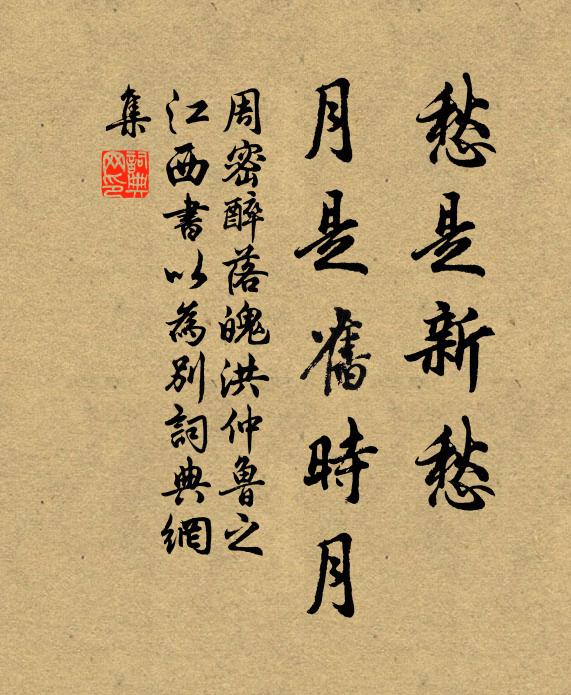 愁是新愁
月是舊時月
周密醉落魄洪仲魯之
江西書以為別詞典網
集
詞典网印